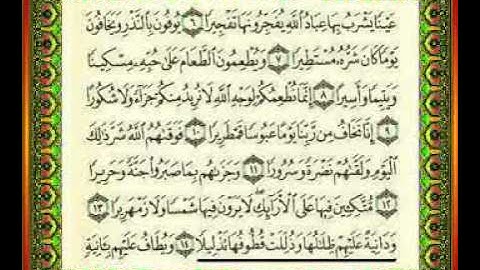 عَيْنًا يَشْرَبُ بِهَا عِبَادُ ٱللَّهِ يُفَجِّرُونَهَا تَفْجِيرًا ٦ يُوفُونَ بِٱلنَّذْرِ وَيَخَافُونَ
يَوْمًا كَانَ شَرُّهُۥ مُسْتَطِيرًا ٧ وَيُطْعِمُونَ ٱلطَّعَامَ عَلَىٰ حُبِّهِۦ مِسْكِينًا
وَيَتِيمًا وَأَسِيرًا ٨ إِنَّمَا نُطْعِمُكُمْ لِوَجْهِ ٱللَّهِ لَا نُرِيدُ مِنكُمْ جَزَآءً وَلَا شُكُورًا
٩ إِنَّا نَخَافُ مِن رَّبِّنَا يَوْمًا عَبُوسًا قَمْطَرِيرًا ١٠ فَوَقَىٰهُمُ ٱللَّهُ شَرَّ ذَٰلِكَ
ٱلْيَوْمِ وَلَقَّىٰهُمْ نَضْرَةً وَسُرُورًا ١١ وَجَزَىٰهُم بِمَا صَبَرُوا۟ جَنَّةً وَحَرِيرًا
١٢ مُّتَّكِـِٔينَ فِيهَا عَلَى ٱلْأَرَآئِكِ لَا يَرَوْنَ فِيهَا شَمْسًا وَلَا زَمْهَرِيرًا ١٣
وَدَانِيَةً عَلَيْهِمْ ظِلَٰلُهَا وَذُلِّلَتْ قُطُوفُهَا تَذْلِيلًا ١٤ وَيُطَافُ عَلَيْهِم بِـَٔانِيَةٍ